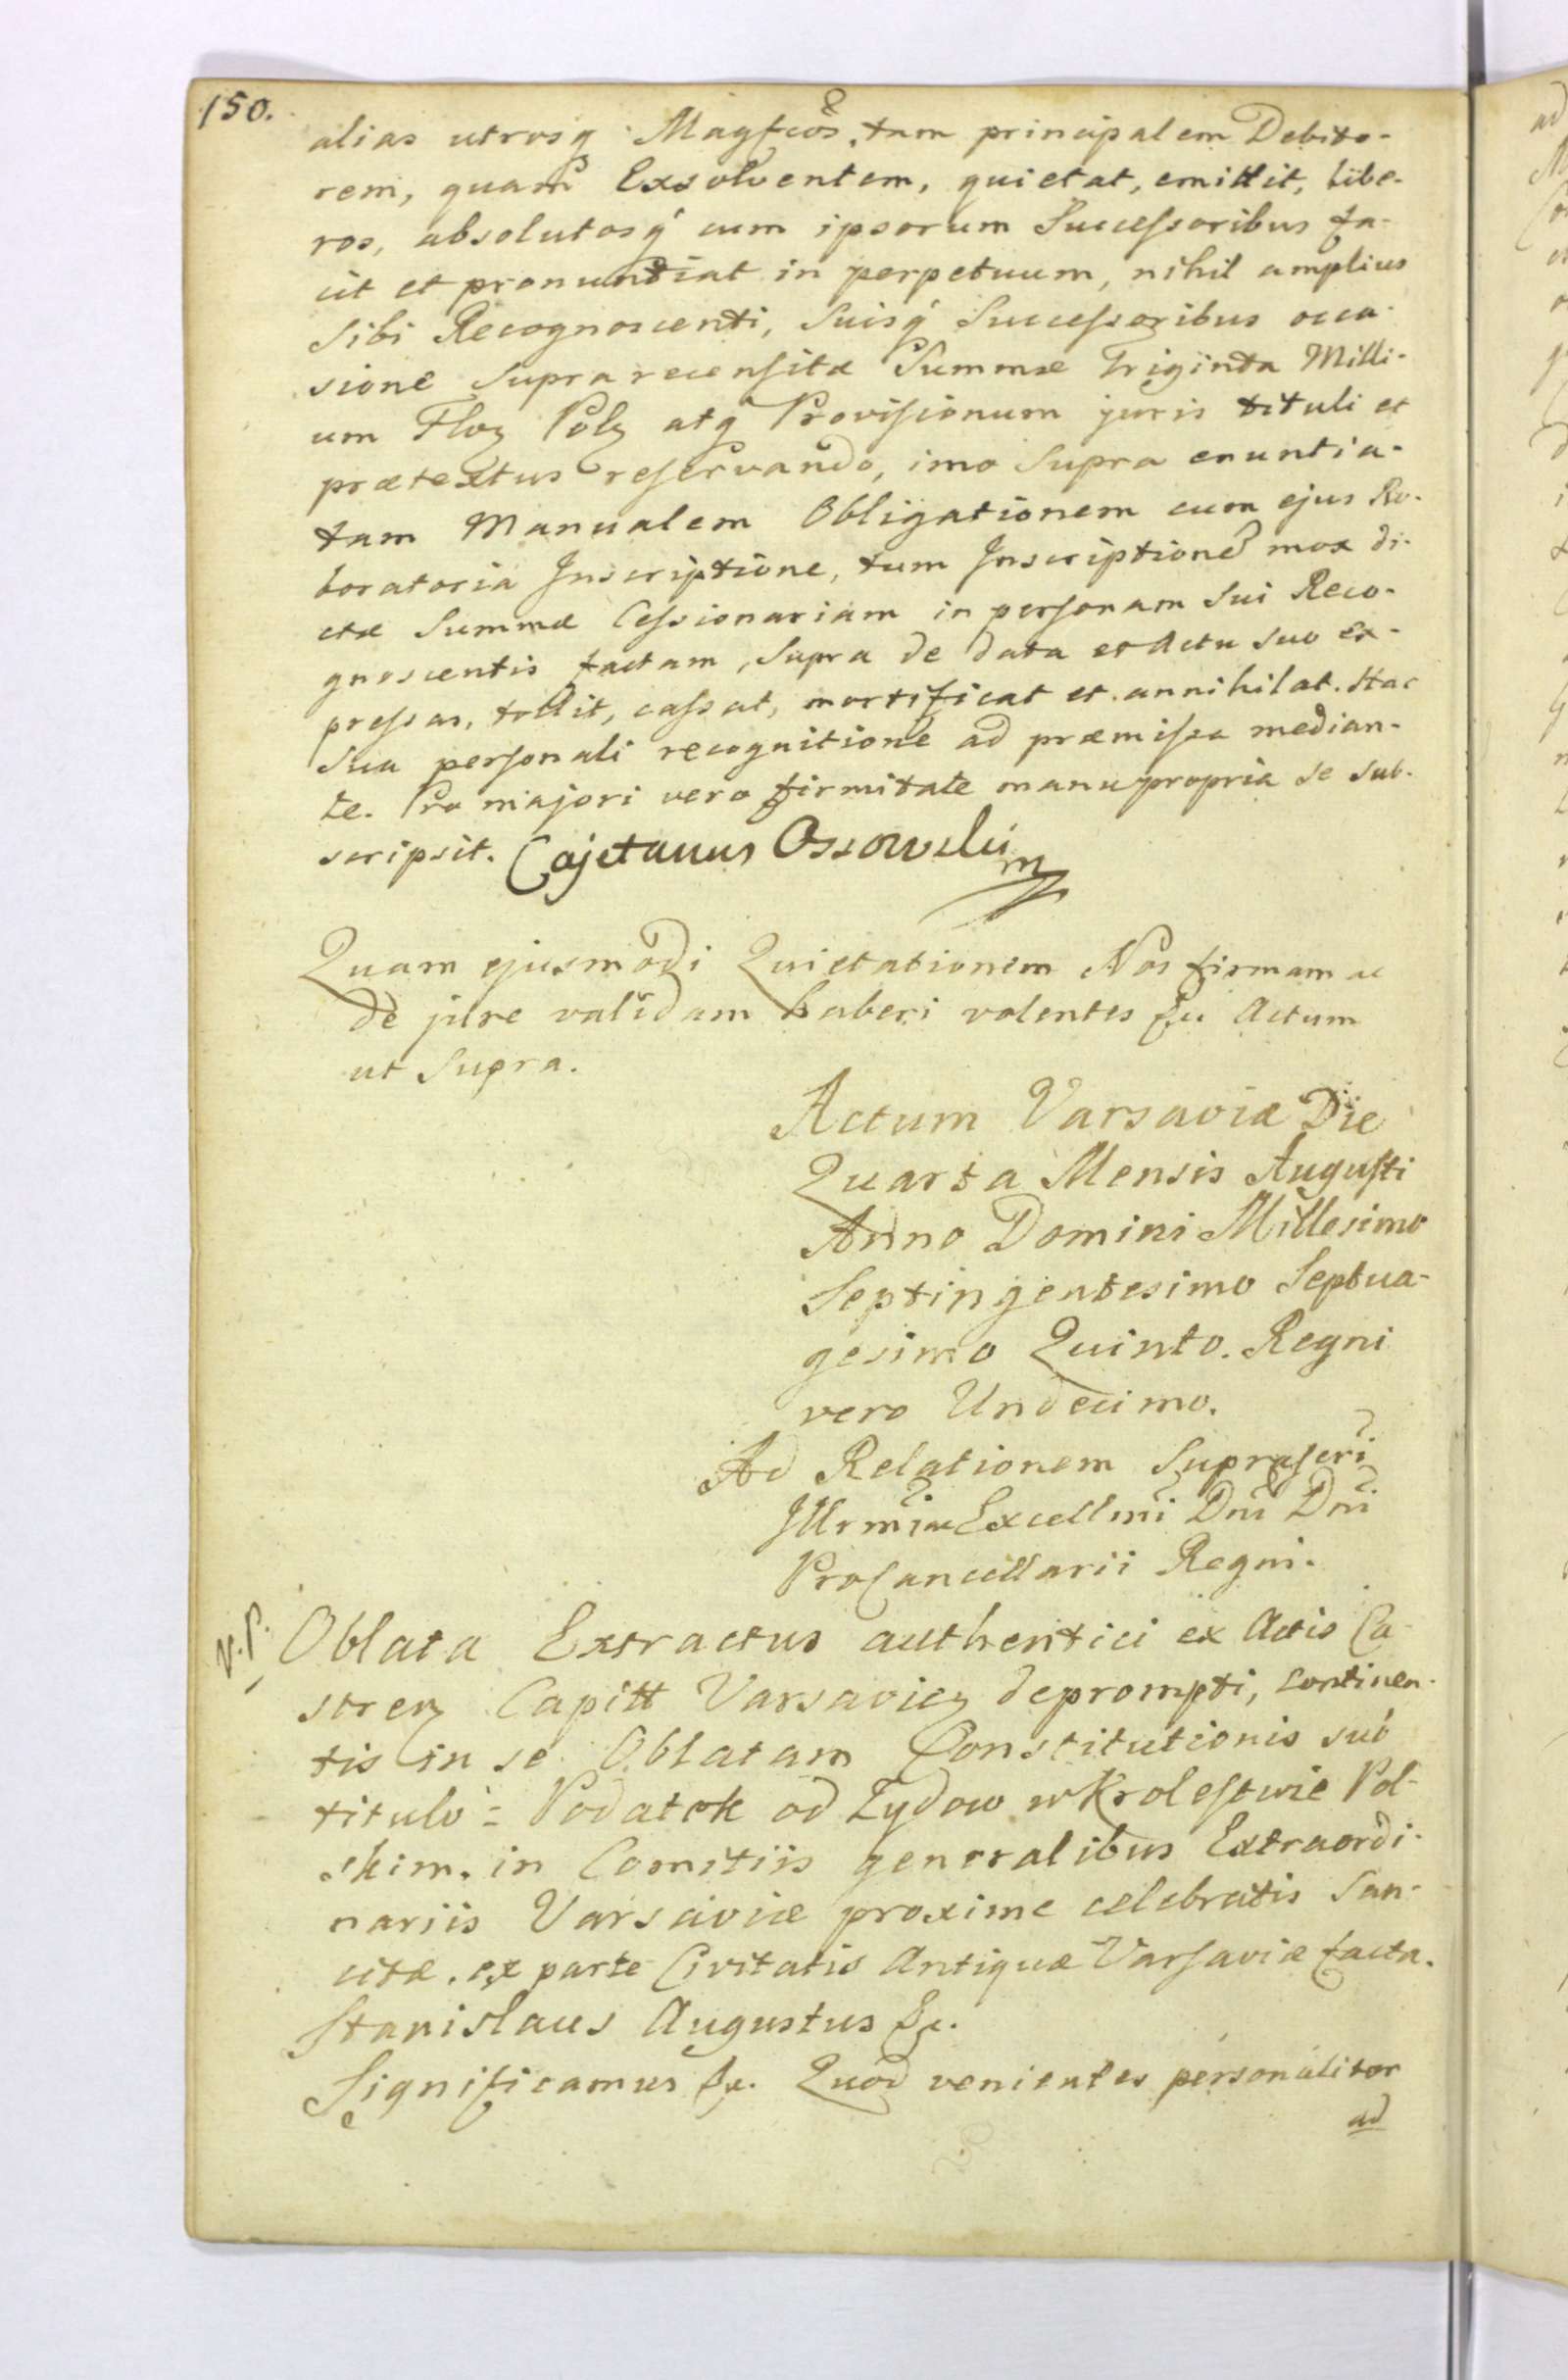 150.
alias utrosq Magfcos, tam principalem Debito-
rem, quam Exsolventem, quietat, emittit, libe-
ros, absolutosq cum ipsorum Successoribus fa-
cit et pronuntiat in perpetuum, nihil amplius
Sibi Recognoscenti, Suisq Successoribus occa-
sione Supra recensitæ Summæ Triginta Milli-
um Floz Polz atq Provisionum juris tituli et
prætextus reservando, imo Supra enuntia-
tam Manualem Obligationem cum ejus Ro-
boratoria Inscriptione, tum Inscriptione mox di-
ctæ Summæ Cessionariam in personam Sui Reco-
gnoscentis factam, Supra de data et Actu suo ex-
pressas, tollit, cassat, mortificat et annihilat. Hac
Sua personali recognitione ad præmissa median-
te. Pro majori vero firmitate manu propria se sub-
scripsit. Cajetanus Ossowski
mp
Quam ejusmodi Quietationem Nos firmam ac
de jure validam haberi volentes &c Actum
ut Supra.
Actum Varsaviæ Die
Quarta Mensis Augusti
Anno Domini Millesimo
Septingentesimo Septua-
gesimo Quinto. Regni
vero Undecimo.
Ad Relationem Suprascri
Illrmi Excellmi Dni Dni
ProCancellarii Regni.
N.P. Oblata Extractus authentici ex Actis Ca-
stren Capitt Varsavien deprompti, continen-
tis in se Oblatam Constitutionis sub
titulo = Podatek od Zydow w Krolestwie Pol-
skim. in Comitiis generalibus Extraordi-
nariis Varsaviæ proxime celebratis San-
citæ. ex parte Civitatis Antiquæ Varsaviæ facta.
Stanislaus Augustus &c.
Significamus &c. Quod venientes personaliter
ad